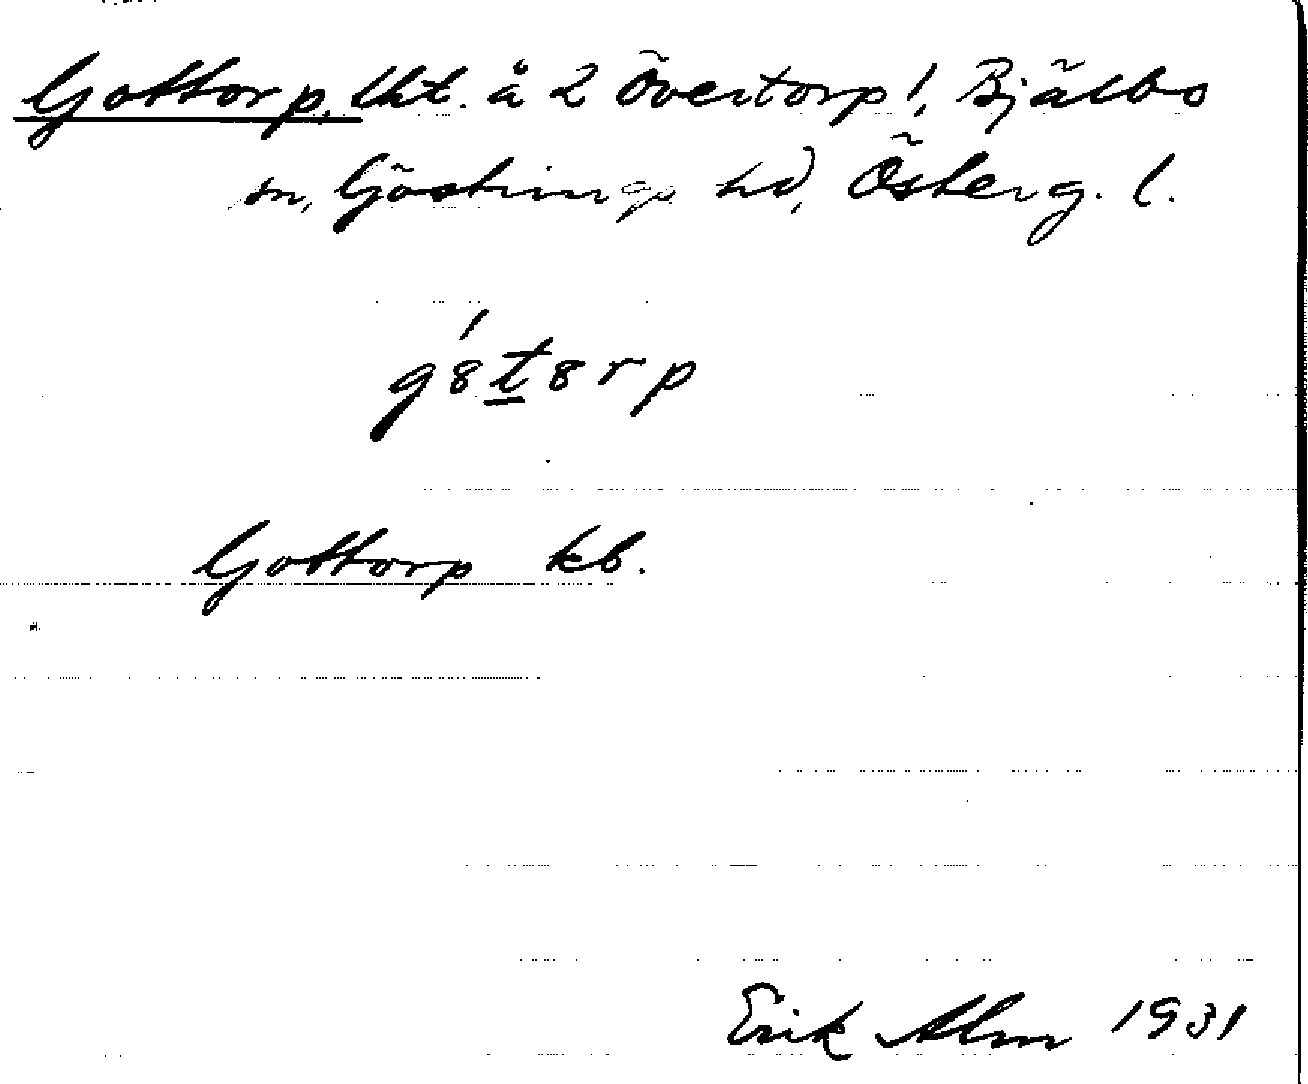 Gottorp, lht. å 2 Övertorp!, Bjälbo
sn, Göstrings hd, Österg. l.
g8́t8rp
Gottorp kb.
Erik Alm 1931